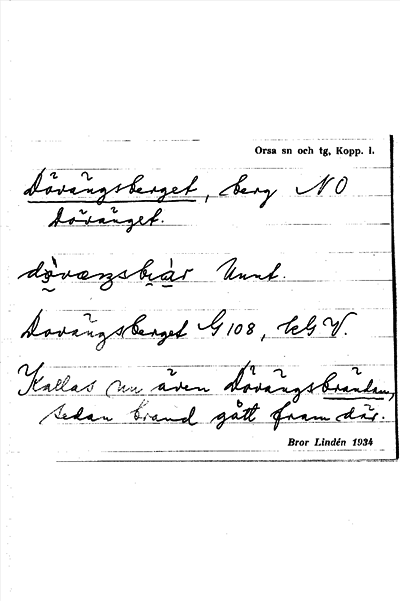 Orsa sn och tg, Kopp. l.
Dövängsberget, berg NO
Dövänget.
dø̀væŋsbi̯àr Unnt.
Dovängsberget G 108, kG V.
Kallas nu även Dövängsbrändan,
sedan brand gått fram där.
Bror Lindén 1934